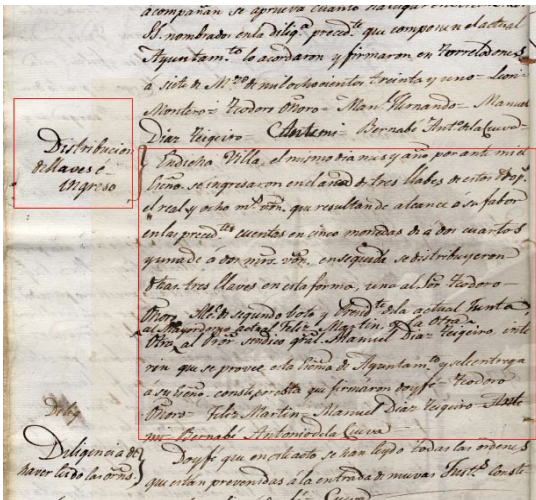 acompañan se aprueva cuanto
SS. nombrados en la dilig.ª preced.te que componen el actual
Ayuntam.to lo acordaron y firmaron en Torrelodones
a siete de M.zo de mil ochocientos treinta y uno = Luis
Montero = Teodoro Oñoro = Man.l Hernando = Manuel
Diaz Teigeiro = Ante mi = Bernabé Ant.º de la Cueva =
Distribucion
de llaves é
ingreso
En dicha Villa, el mismo dia mes y año por ante mi el
Esno. se ingresaron en el arca de tres llabes de estos Prop.
el real y ocho m.s von. que resultan de alcance a su fabor
en las preced.tes cuentas en cinco monedas de a dos cuartos
y una de a dos mrs. von. enseguida se distribuyeron
dhas. tres llaves en esta forma, una al Sor. Teodoro
Oñoro Alc.e de segundo boto y Presid.te de la actual Junta,
al Mayordomo actual Feliz Martin, y la otra
Otra, al Pror. sindico gral. Manuel Diaz Teigeiro, inte
ren que se provee esta Esnia. de Ayuntam.to y se le entrega
a su Esno. conste por esta que firmaron doy fé = Teodoro
Oñoro = Feliz Martin = Manuel Diaz Teigeiro = Ante
mi = Bernabé Antonio de la Cueva =
Dilig
Diligencia de
haver leido las orns.
Doy fé que en este acto se han leydo todas las ordenes
que estan prevenidas a la entrada de nuevas Just.s conste
Cueva